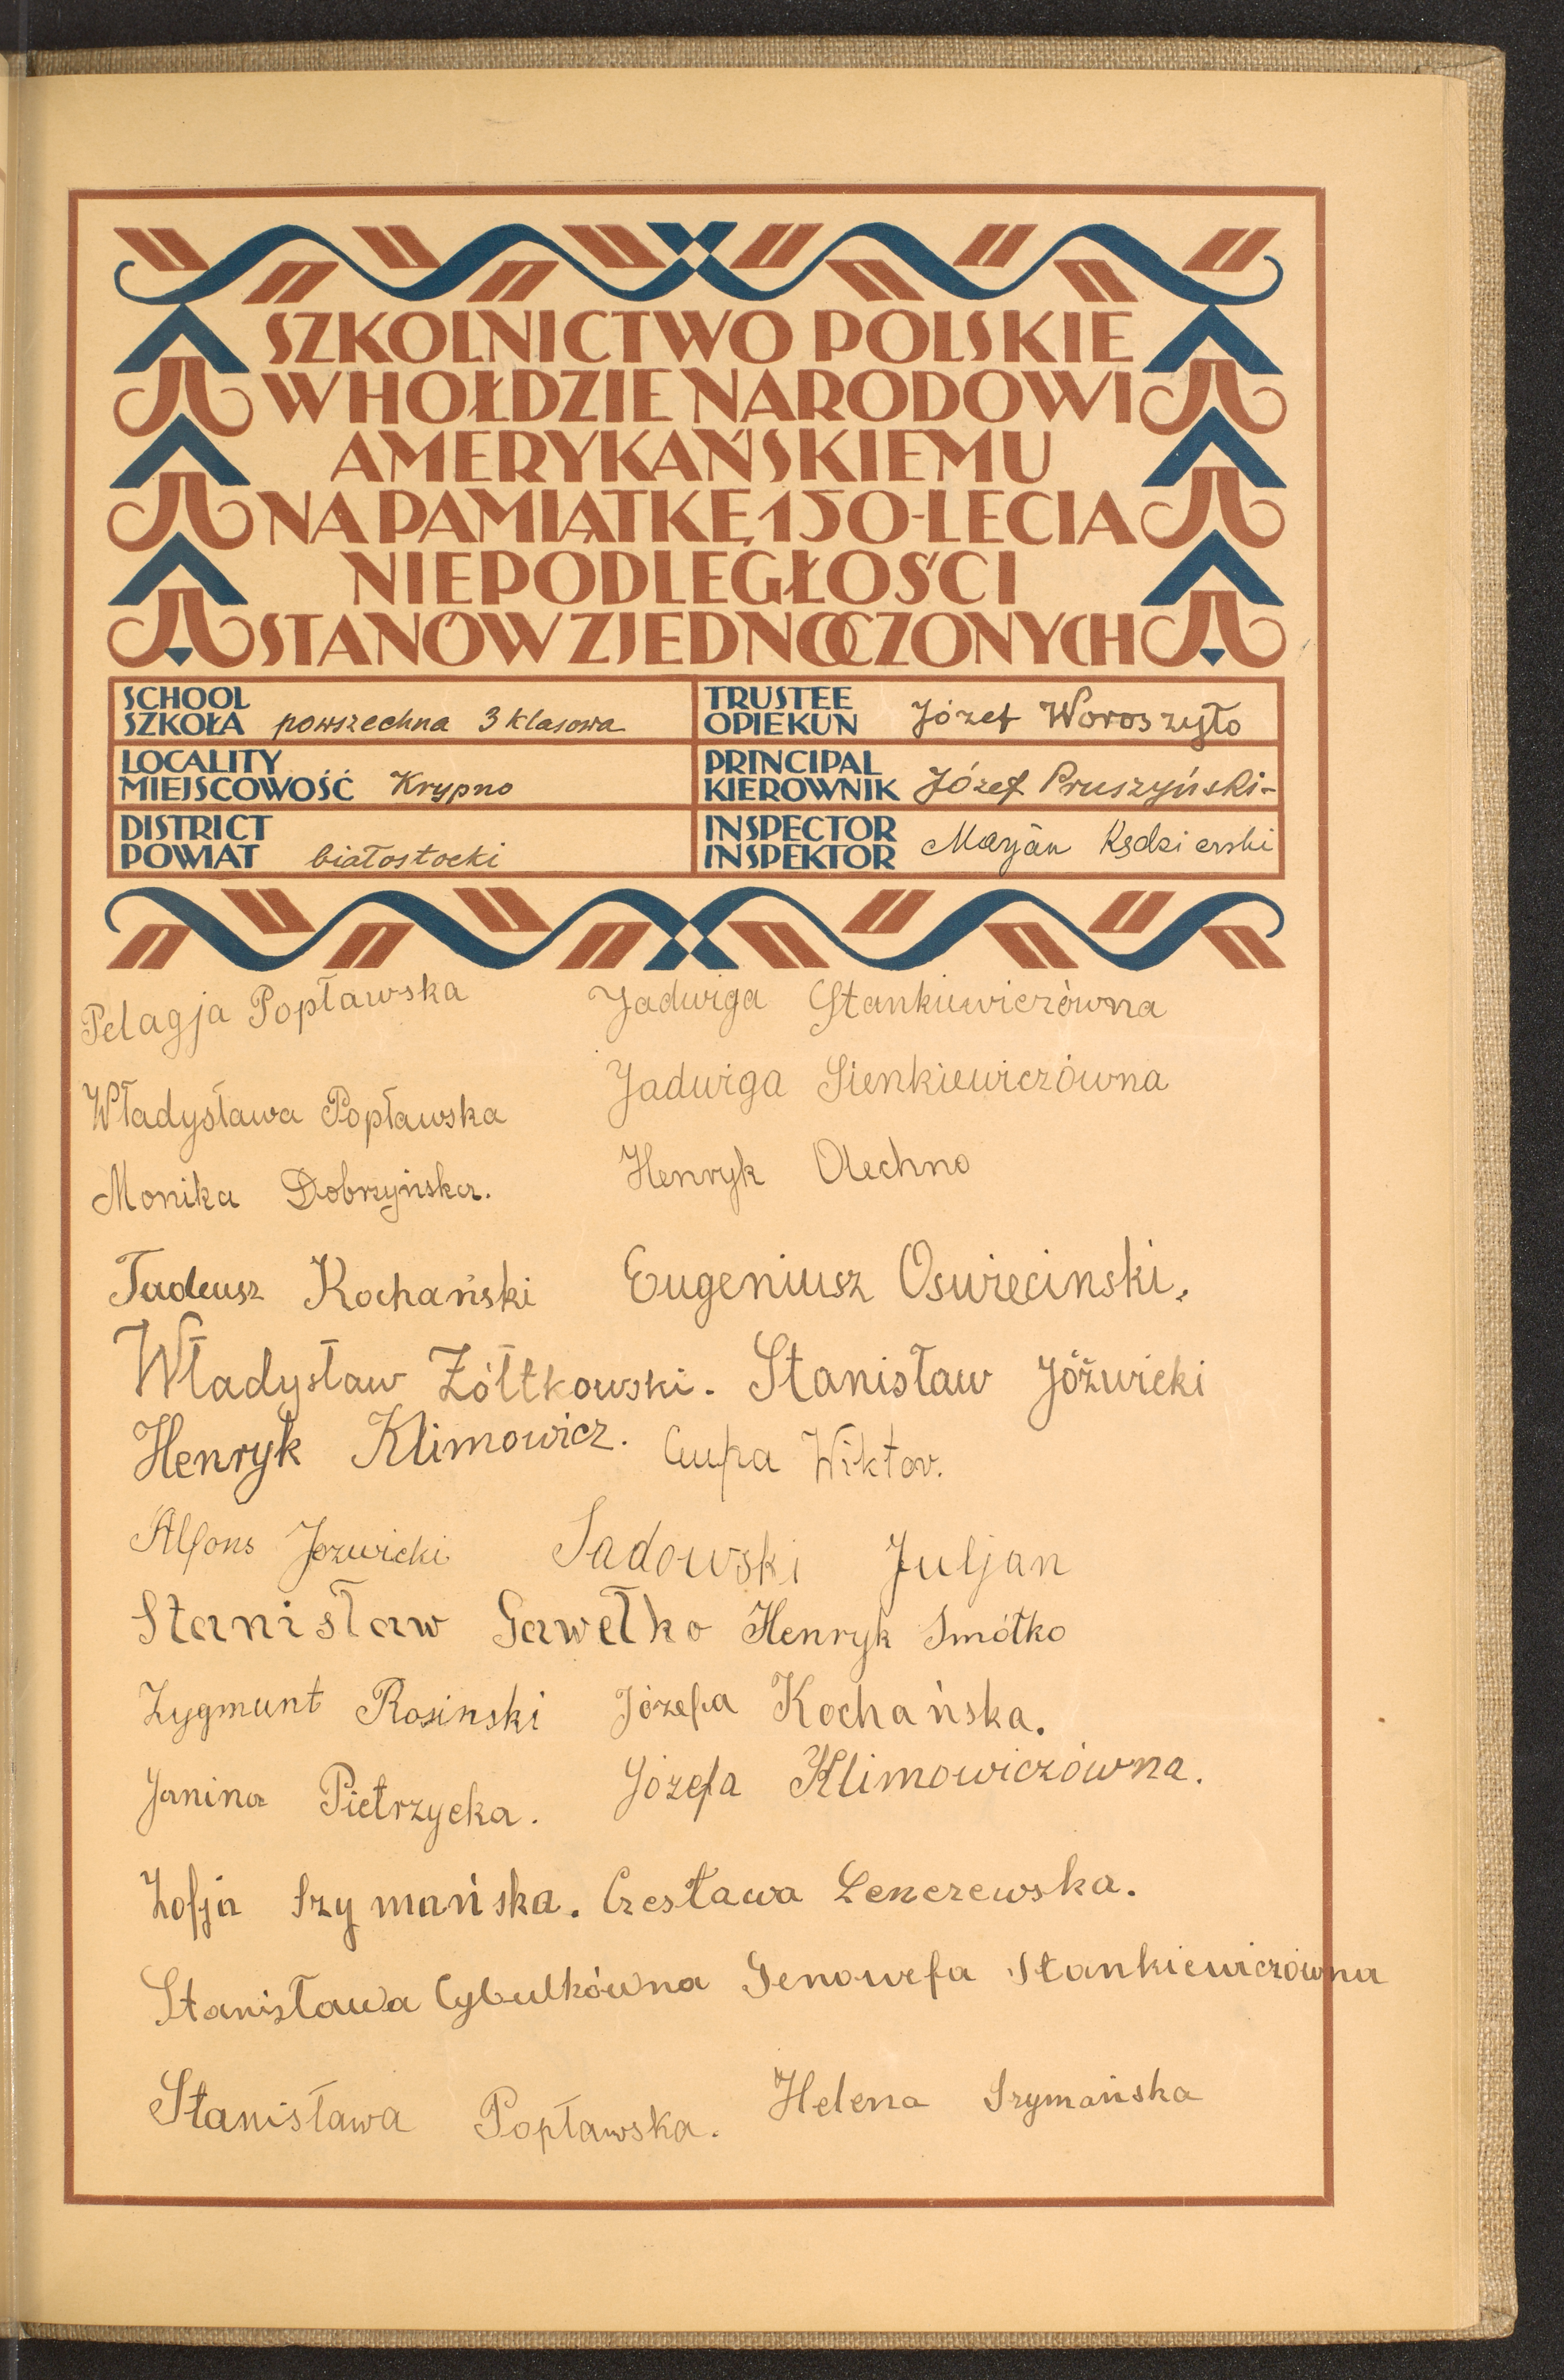 SZKOLNICTWO POLSKIE
W HOŁDZIE NARODOWI
AMERYKAŃSKIEMU
NA PAMIĄTKĘ 150-LECIA
NIEPODLEGŁOŚCI
STANÓW ZJEDNOCZONYCH
SCHOOL
SZKOŁA powszechna 3 klasowa
TRUSTEE
OPIEKUN Józef Woroszyło
LOCALITY
MIEJSCOWOŚĆ Krypno
PRINCIPAL
KIEROWNIK Józef Pruszyński-
DISTRICT
POWIAT białostocki
INSPECTOR
INSPEKTOR Marjan Kędzierski
Pelagja Popławska Jadwiga Stankiewiczówna
Władysława Popławska Jadwiga Sienkiewiczówna
Monika Dobrzyńska. Henryk Olechno
Tadeusz Kochański Eugeniusz Oswiecinski.
Władysław Żółtkowski. Stanisław Jóżwicki
Henryk Klimowicz. Wiktor.
Alfons Jozwicki Sadowski Juljan
Stanisław Gawełko Henryk Smółko
Zygmunt Rosinski Józefa Kochańska.
Janina Pietrzycka. Józefa Klimowiczówna.
Zofja Szymańska. Czesława Lenczewska.
Stanisława Cybulkówna Genowefa Stankiewiczówna
Stanisława Popławska. Helena Szymańska